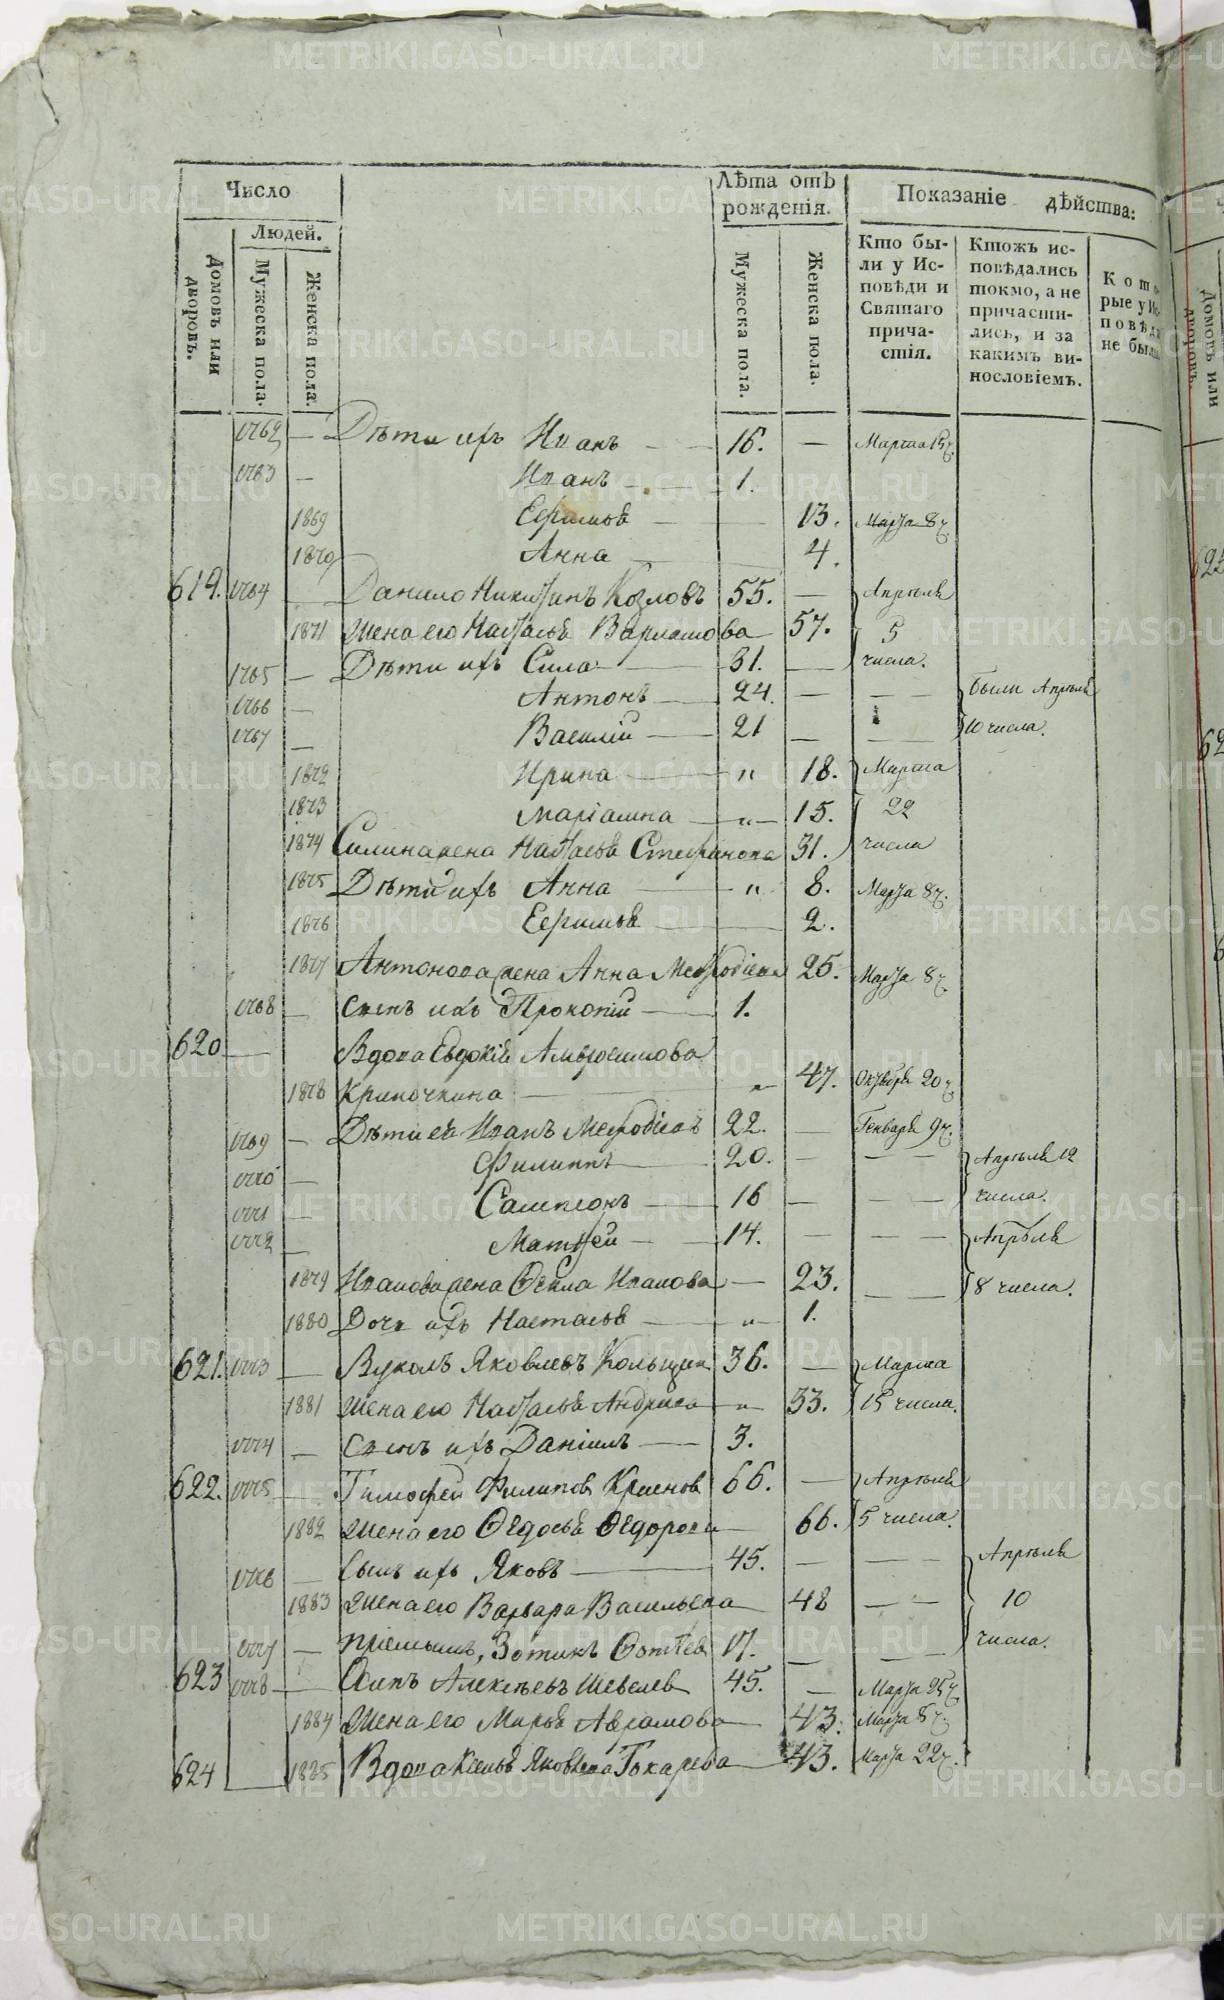 METRIKI.GASO-URAL.RU
Число
Лѣта отъ рожденія.
Показаніе дѣйства:
Людей.
Домовъ или дворовъ.
Мужеска пола.
Женска пола.
Мужеска пола.
Женска пола.
Кто бы-
ли у Ис-
повѣди и
Святаго
прича-
стія.
Ктожъ ис-
повѣдались
токмо, а не
причасти-
лись, и за
какимъ ви-
нословіемъ.
Кото-
рые у Ис-
повѣди
не были
Дѣти ихъ Иванъ 16. — Марта 15 ч.
Иванъ 1.
1869 Еѳимья 13. Марта 8 ч.
1870 Анна 4.
619. Данило Никитинъ Козловъ 55. — Апрѣля
1871 Жена его Наталья Варламова 57. 5
Дѣти ихъ Сила 31. — числа.
Антонъ 24. — были Апрѣля
Василій 21 — 10 числа.
1872 Ирина " 18. Марта
1873 Маріамна " 15. 22
1874 Силина жена Наталья Стефанова 31. числа
1875 Дѣти ихъ Анна " 8. Марта 8 ч.
1876 Еѳимья 2.
1877 Антонова жена Анна Меѳодіева 25. Марта 8 ч.
Сынъ ихъ Прокопій 1.
620 Вдова Евдокія Амвросимова
1878 Криночкина " 47. Октября 20 ч.
Дѣти ея Иванъ Меѳодіевъ 22. — Генваря 9 ч.
Филиппъ 20. — Апрѣля 12
Сампсонъ 16 — числа.
Матѳей 14. — Апрѣля
1879 Иванова жена Ѳекла Иванова — 23. 8 числа.
1880 Дочь ихъ Настасья " 1.
621. Вуколъ Яковлевъ 36. — Марта
1881 Жена его Наталья Андреева " 33. 15 числа.
Сынъ ихъ Даніилъ 3.
622. Тимофей Филипов Краснов 66. — Апрѣля
1882 Жена его Ѳедосья Ѳедорова 66. 5 числа.
Сынъ ихъ Яковъ 45. — Апрѣля
1883 Жена его Варвара Васильева 48 10
пріемышъ, Зотикъ Фотіев 17. — числа.
623 Осипъ Алексѣевъ Шевелев 45. — Марта 25 ч.
1884 Жена его Марья Аврамова 43. Марта 8 ч.
624 1885 Вдова Ксенья Яковлева Токарева 43. Марта 22 ч.